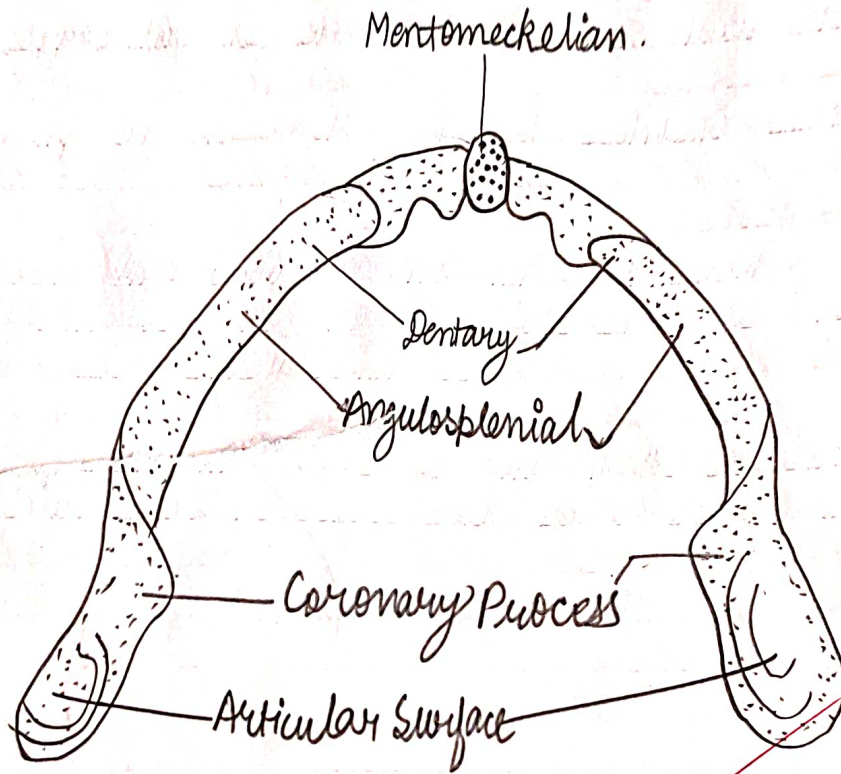 Mentomeckelian.
Dentary
Angulosplenial
Coronary Process
Articular Surface